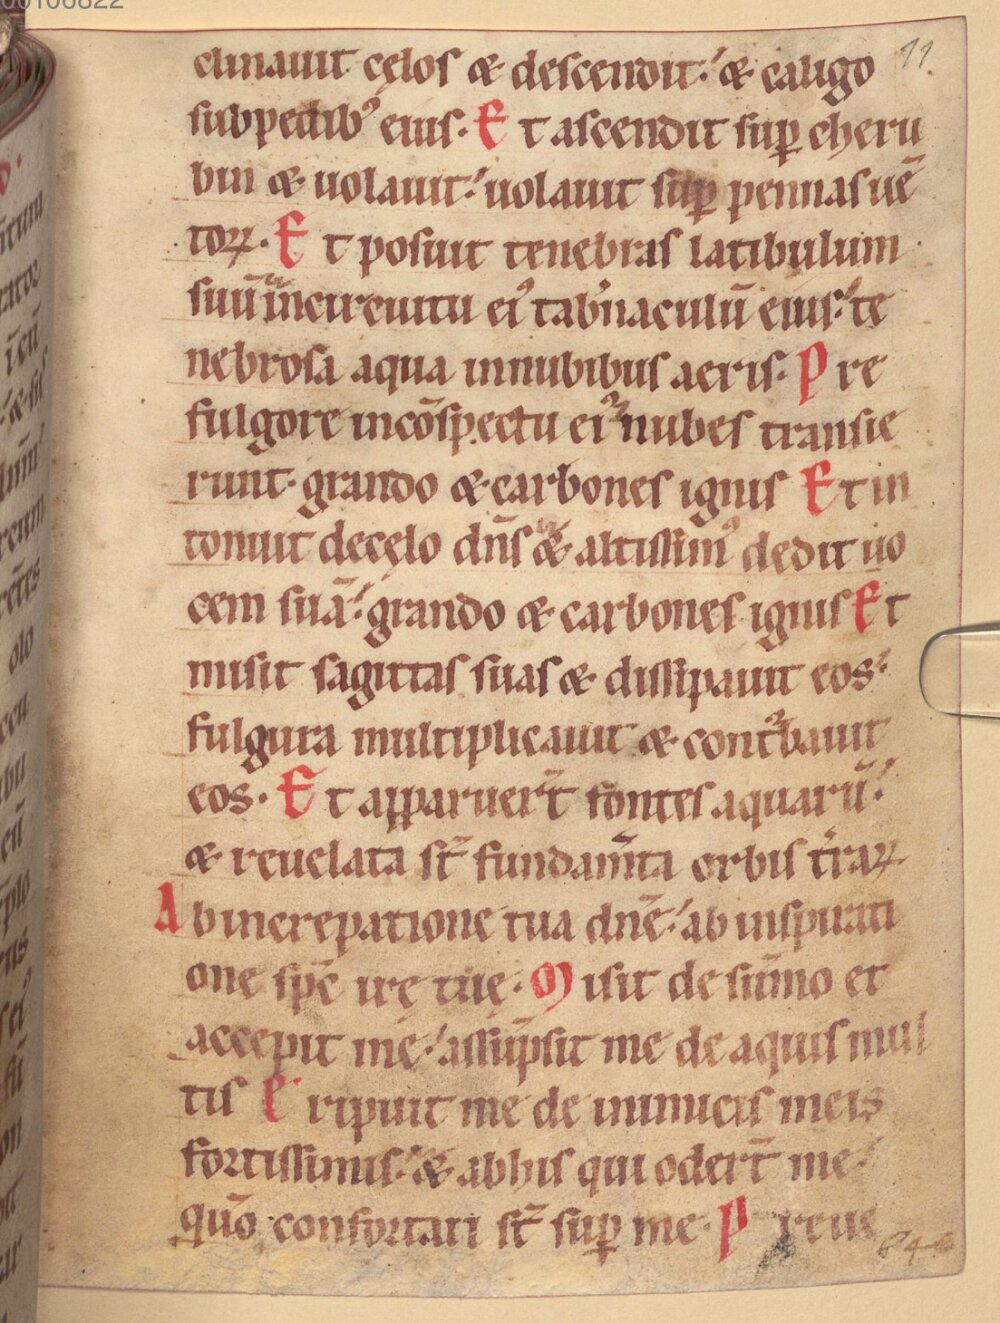 00106822
11.
clinauit cęlos & descendit: & caligo
subpedib' eius. Et ascendit sup̱ cheru
bin & uolauit: uolauit sup̱ pennas uē
toꝝ. Et posuit tenebras latibulum
suū incircuitu ei' tab̄naculū eius: te
nebrosa aqua innubibus aeris. Pre
fulgore incōspectu ei' nubes transie
runt. grando & carbones ignis Et in
tonuit decęlo dn̄s & altissim' dedit uo
cem suā: grando & carbones ignis Et
misit sagittas suas & dissipauit eos:
fulgura multiplicauit & cont̾bauit
eos. Et apparuer̄t fontes aquarū:
& reuelata st̄ fundam̄ta orbis t̄raꝝ
Ab increpatione tua dn̄e: ab inspirati
one sp̄c irę tuę. Misit de sūmo et
accepit me: assūpsit me de aquis mul
tis Eripuit me de inimicis meis
fortissimis: & abhis qui oder̄t me
quō confortati st̄ sup̱ me. Preue